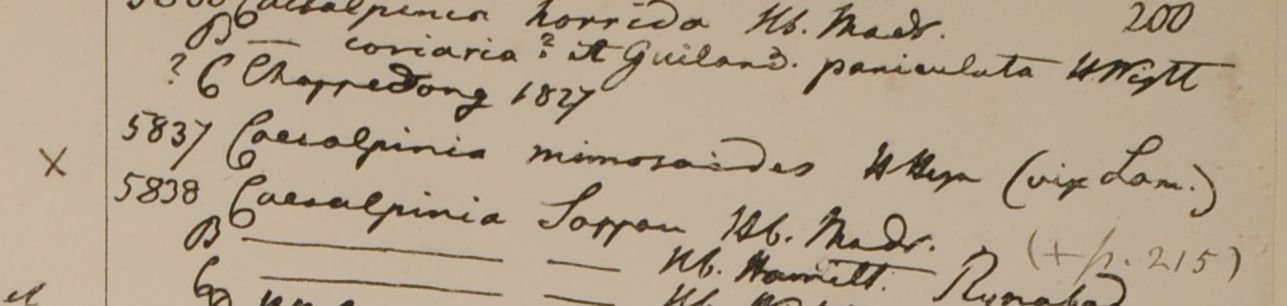 Caesalpinia horrida Hb. Madr. 200
B — coriaria? et Guiland. paniculata HWight
? C Chappedong 1827
5837 Caesalpinia mimosoides HHeyn (vix Lam.)
x
5838 Caesalpinia Sappan Hb. Madr.
B — — Hb. Hamilt. (+ p. 215)
C — —